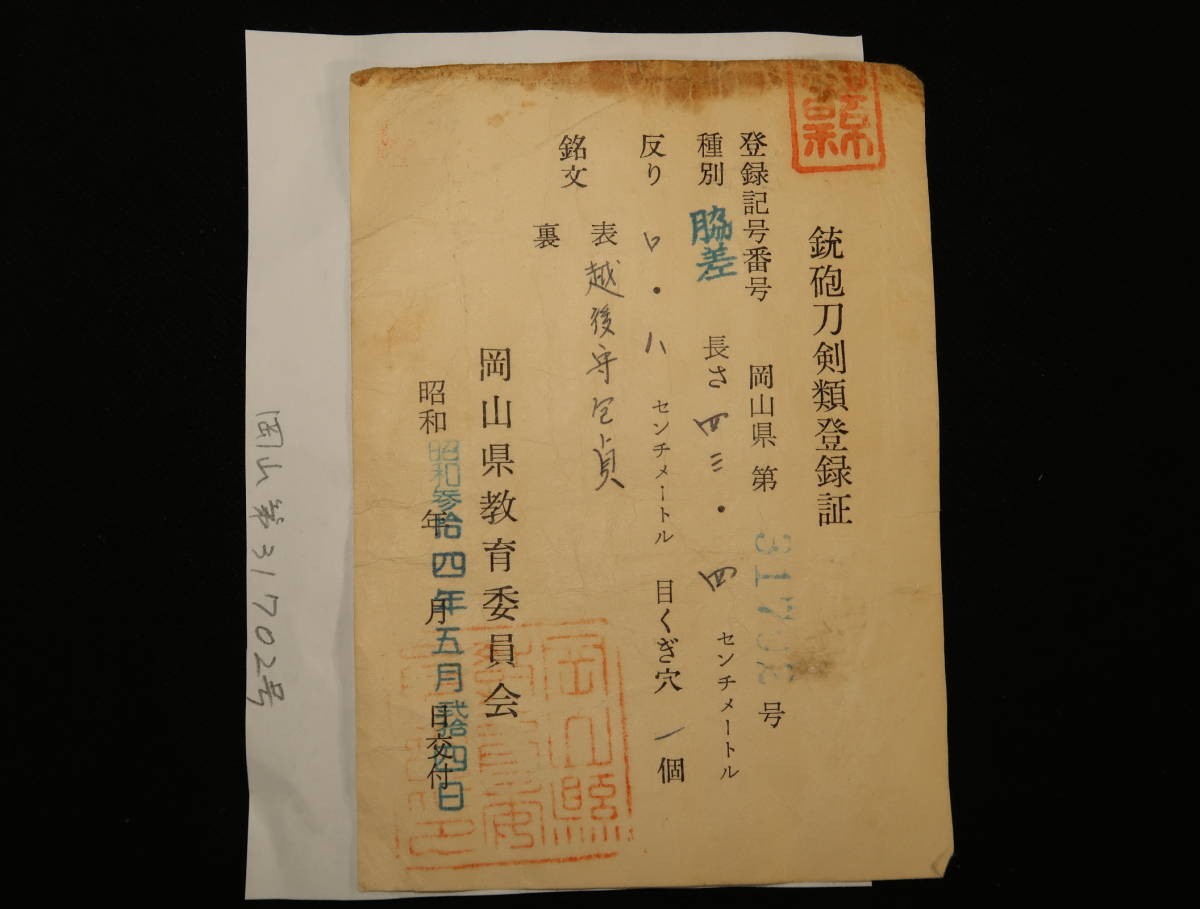 銃砲刀剣類登録証
登録記号番号 岡山県 第 31702 号
種別 脇差 長さ 四三・四 センチメートル
反り 〇・八 センチメートル 目くぎ穴 一個
銘文 表 越後守包貞
裏
岡山県教育委員会
昭和 年 月 日交付
昭和参拾四年五月弐拾四日
岡山縣
岡山第31702号